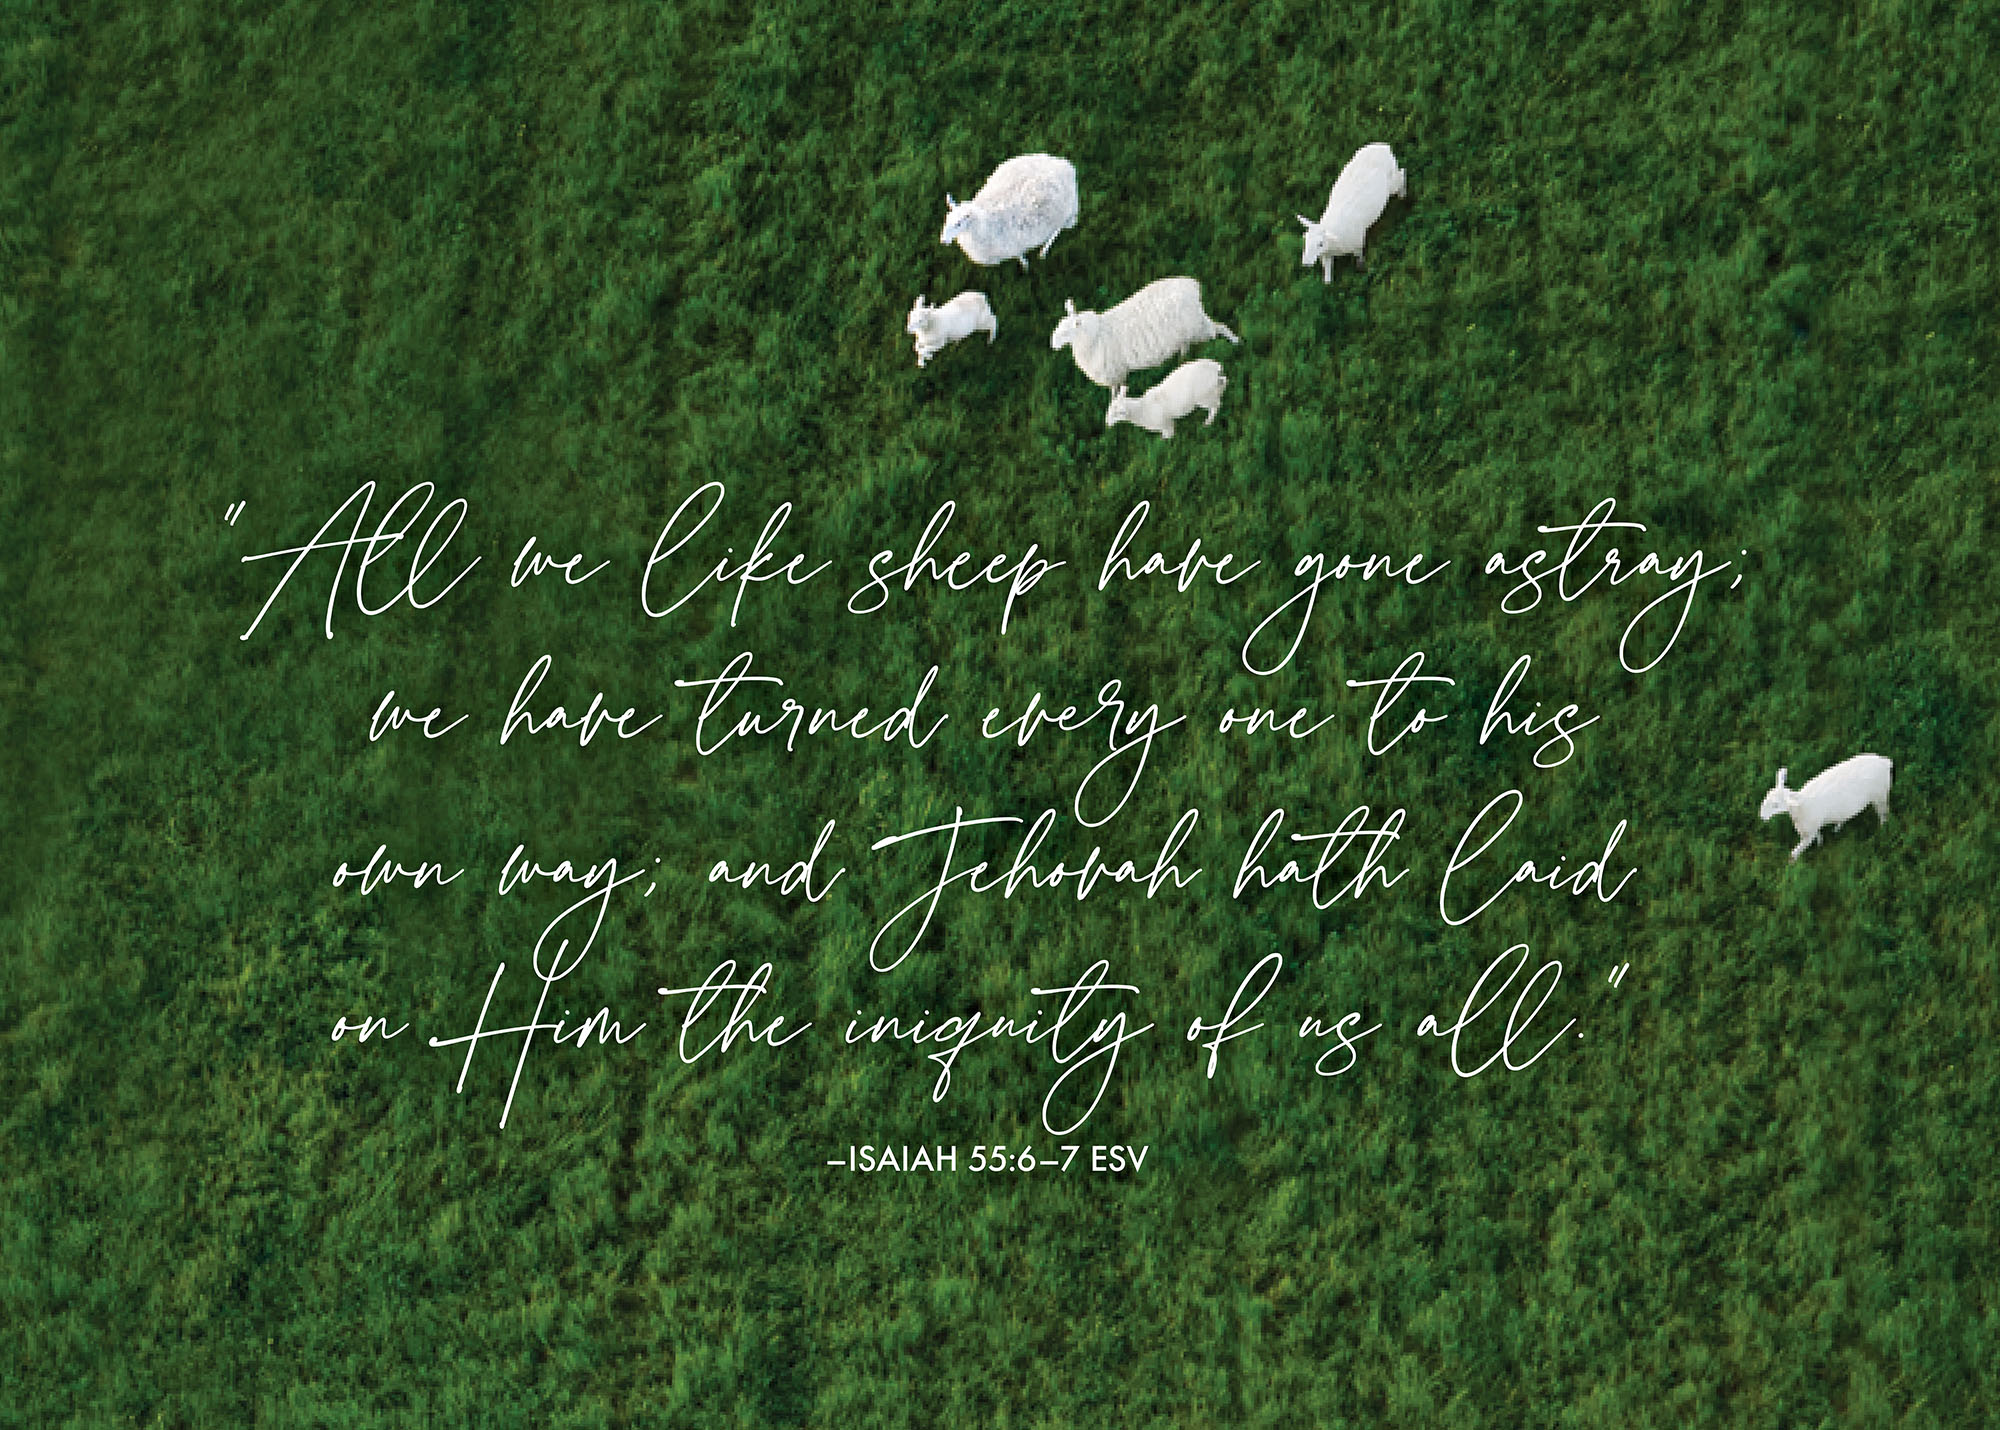 "All we like sheep have gone astray;
we have turned every one to his
own way; and Jehovah hath laid
on Him the iniquity of us all."
–ISAIAH 55:6–7 ESV